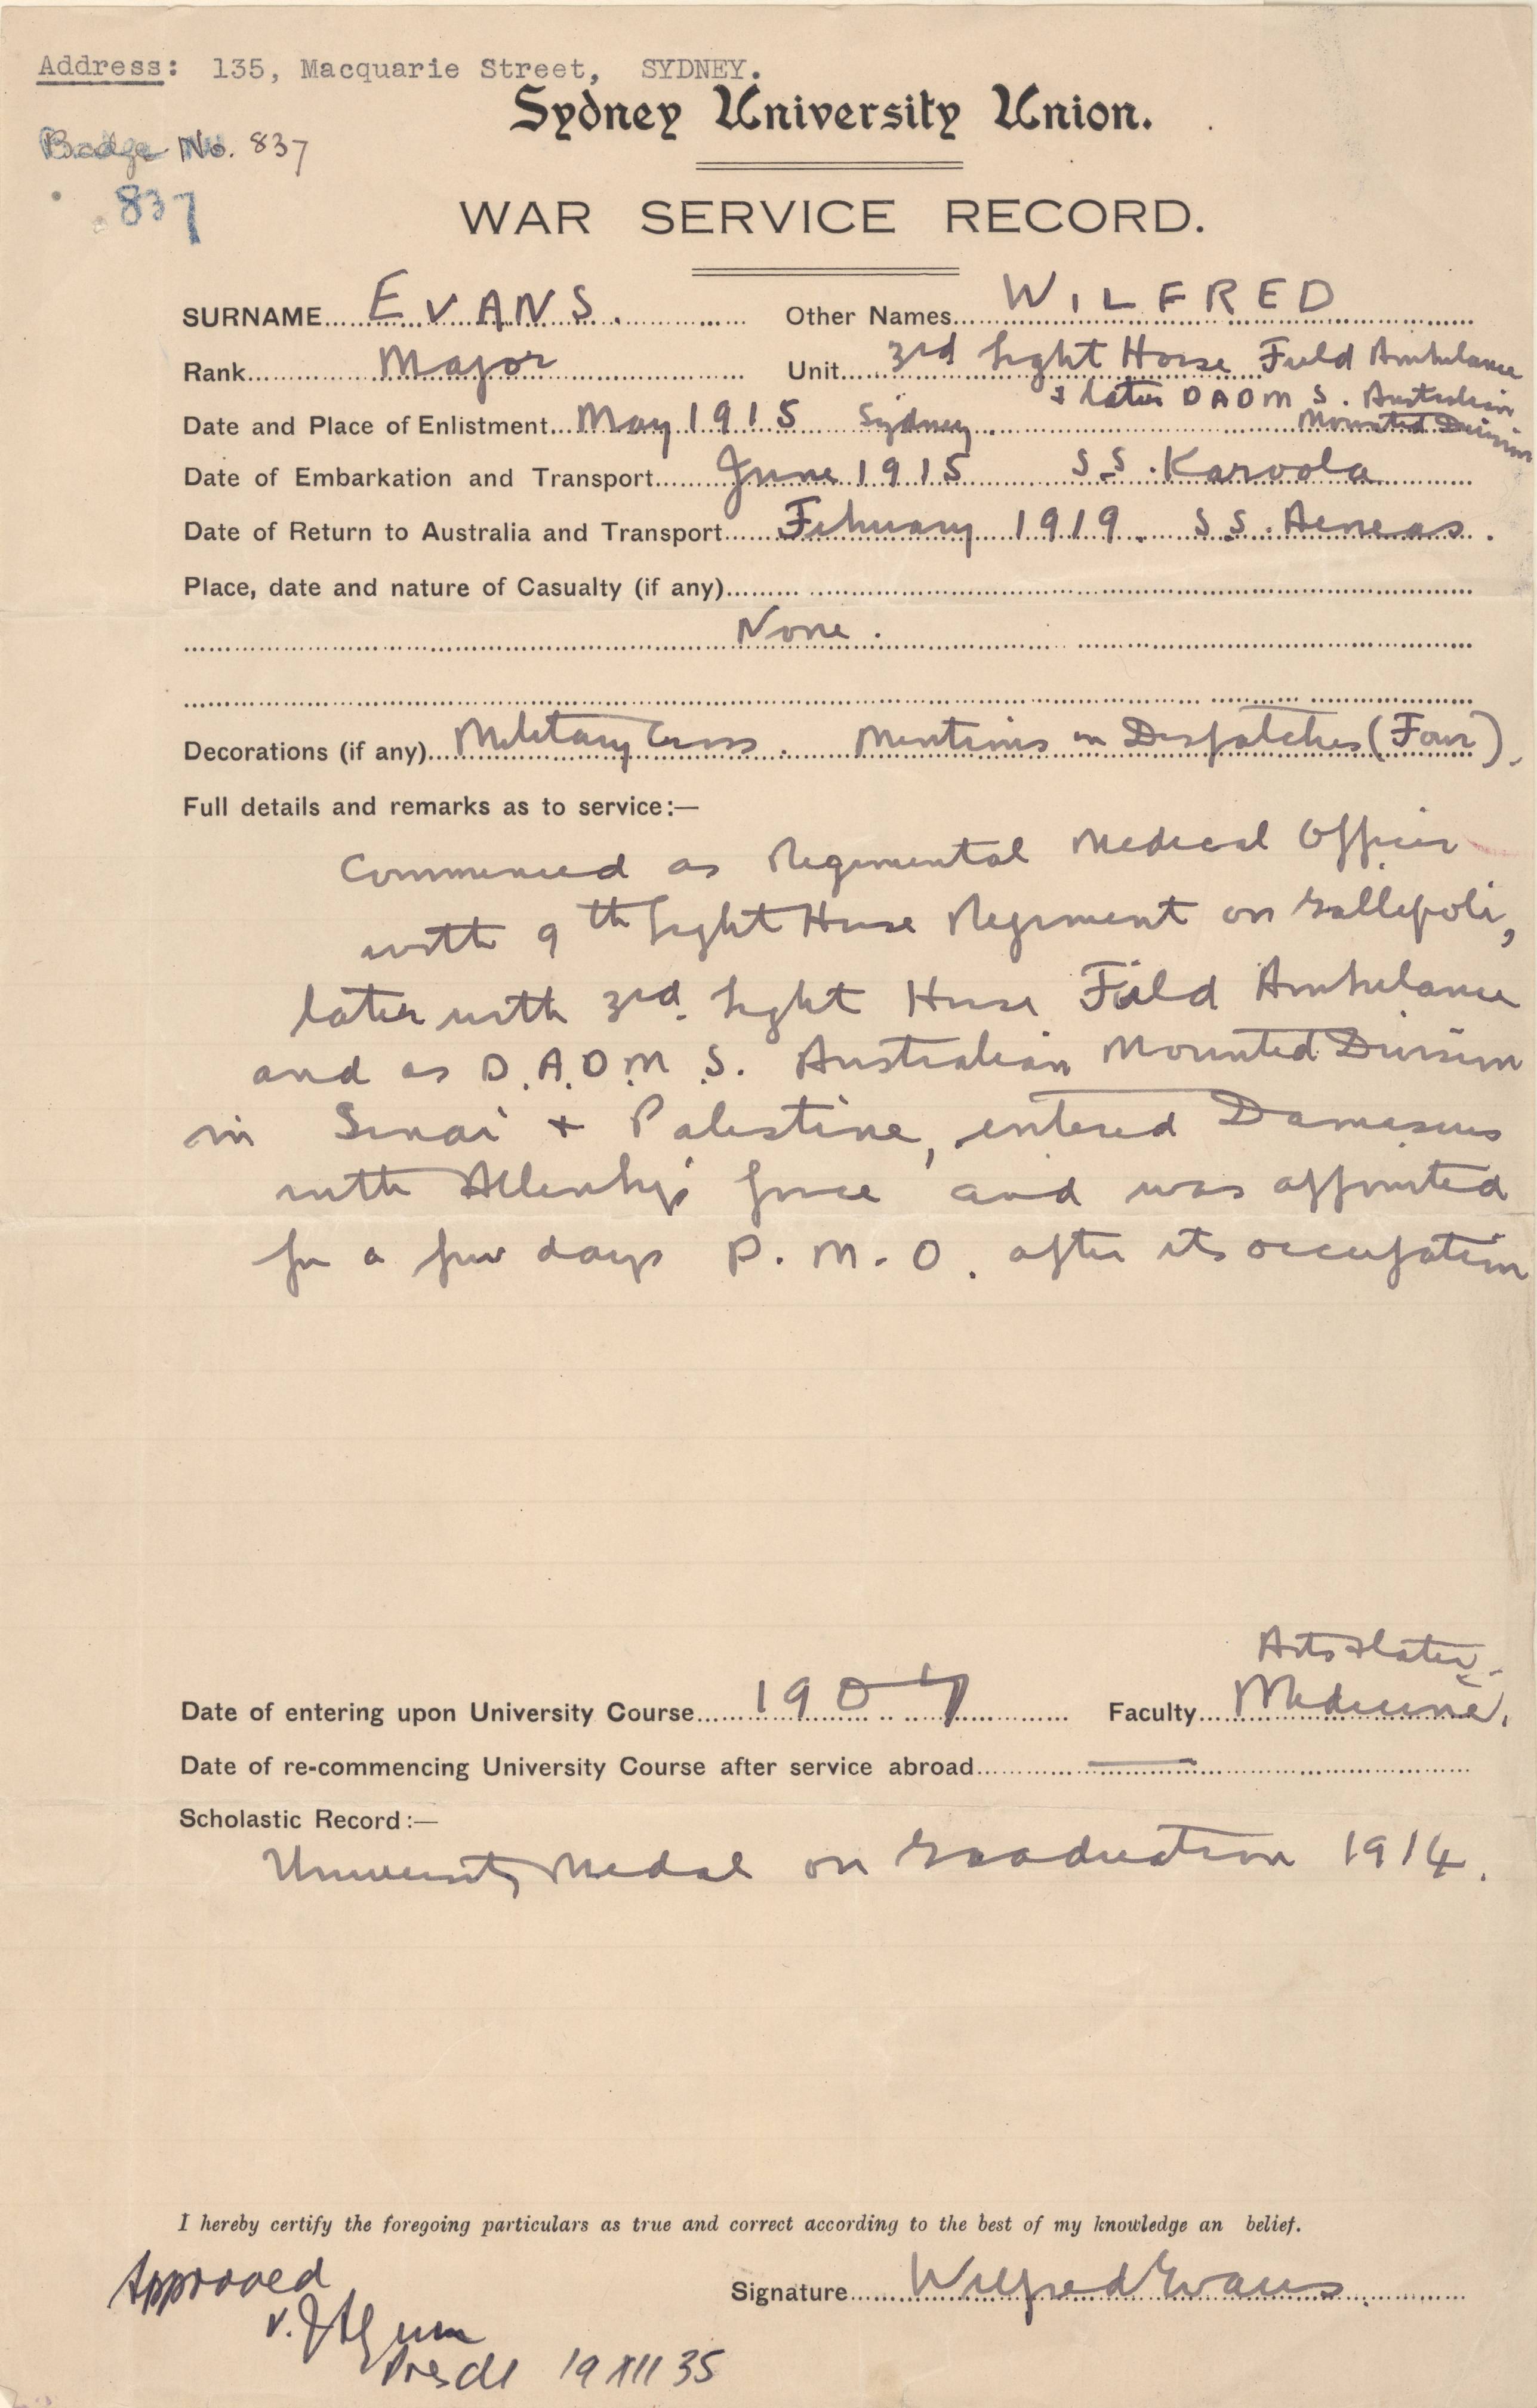 Address: 135, Macquarie Street, SYDNEY.
Sydney University Union.
Badge No. 837
837
WAR SERVICE RECORD.
SURNAME EVANS. Other Names WILFRED
Rank Major Unit 3rd Light Horse Field Ambulance
& later D A D M S. Australian
Mounted Division
Date and Place of Enlistment May 1915 Sydney
Date of Embarkation and Transport June 1915 S.S. Karoola
Date of Return to Australia and Transport February 1919. S.S. Aeneas.
Place, date and nature of Casualty (if any)
None.
Decorations (if any) Military Cross. Mentions in Despatches (Four).
Full details and remarks as to service:—
Commenced as Regimental Medical Officer
with 9th Light Horse Regiment on Gallipoli,
later with 3rd. Light Horse Field Ambulance
and as D.A.D.M.S. Australian Mounted Division
in Sinai + Palestine, entered Damascus
with Allenby's force and was appointed
for a few days P.M.O. after its occupation
Arts & later
Date of entering upon University Course 1907 Faculty Medicine.
Date of re-commencing University Course after service abroad —
Scholastic Record:—
University Medal on Graduation 1914.
I hereby certify the foregoing particulars as true and correct according to the best of my knowledge an belief.
Approved
Signature Wilfred Evans
V.
Presdt 19 XII 35